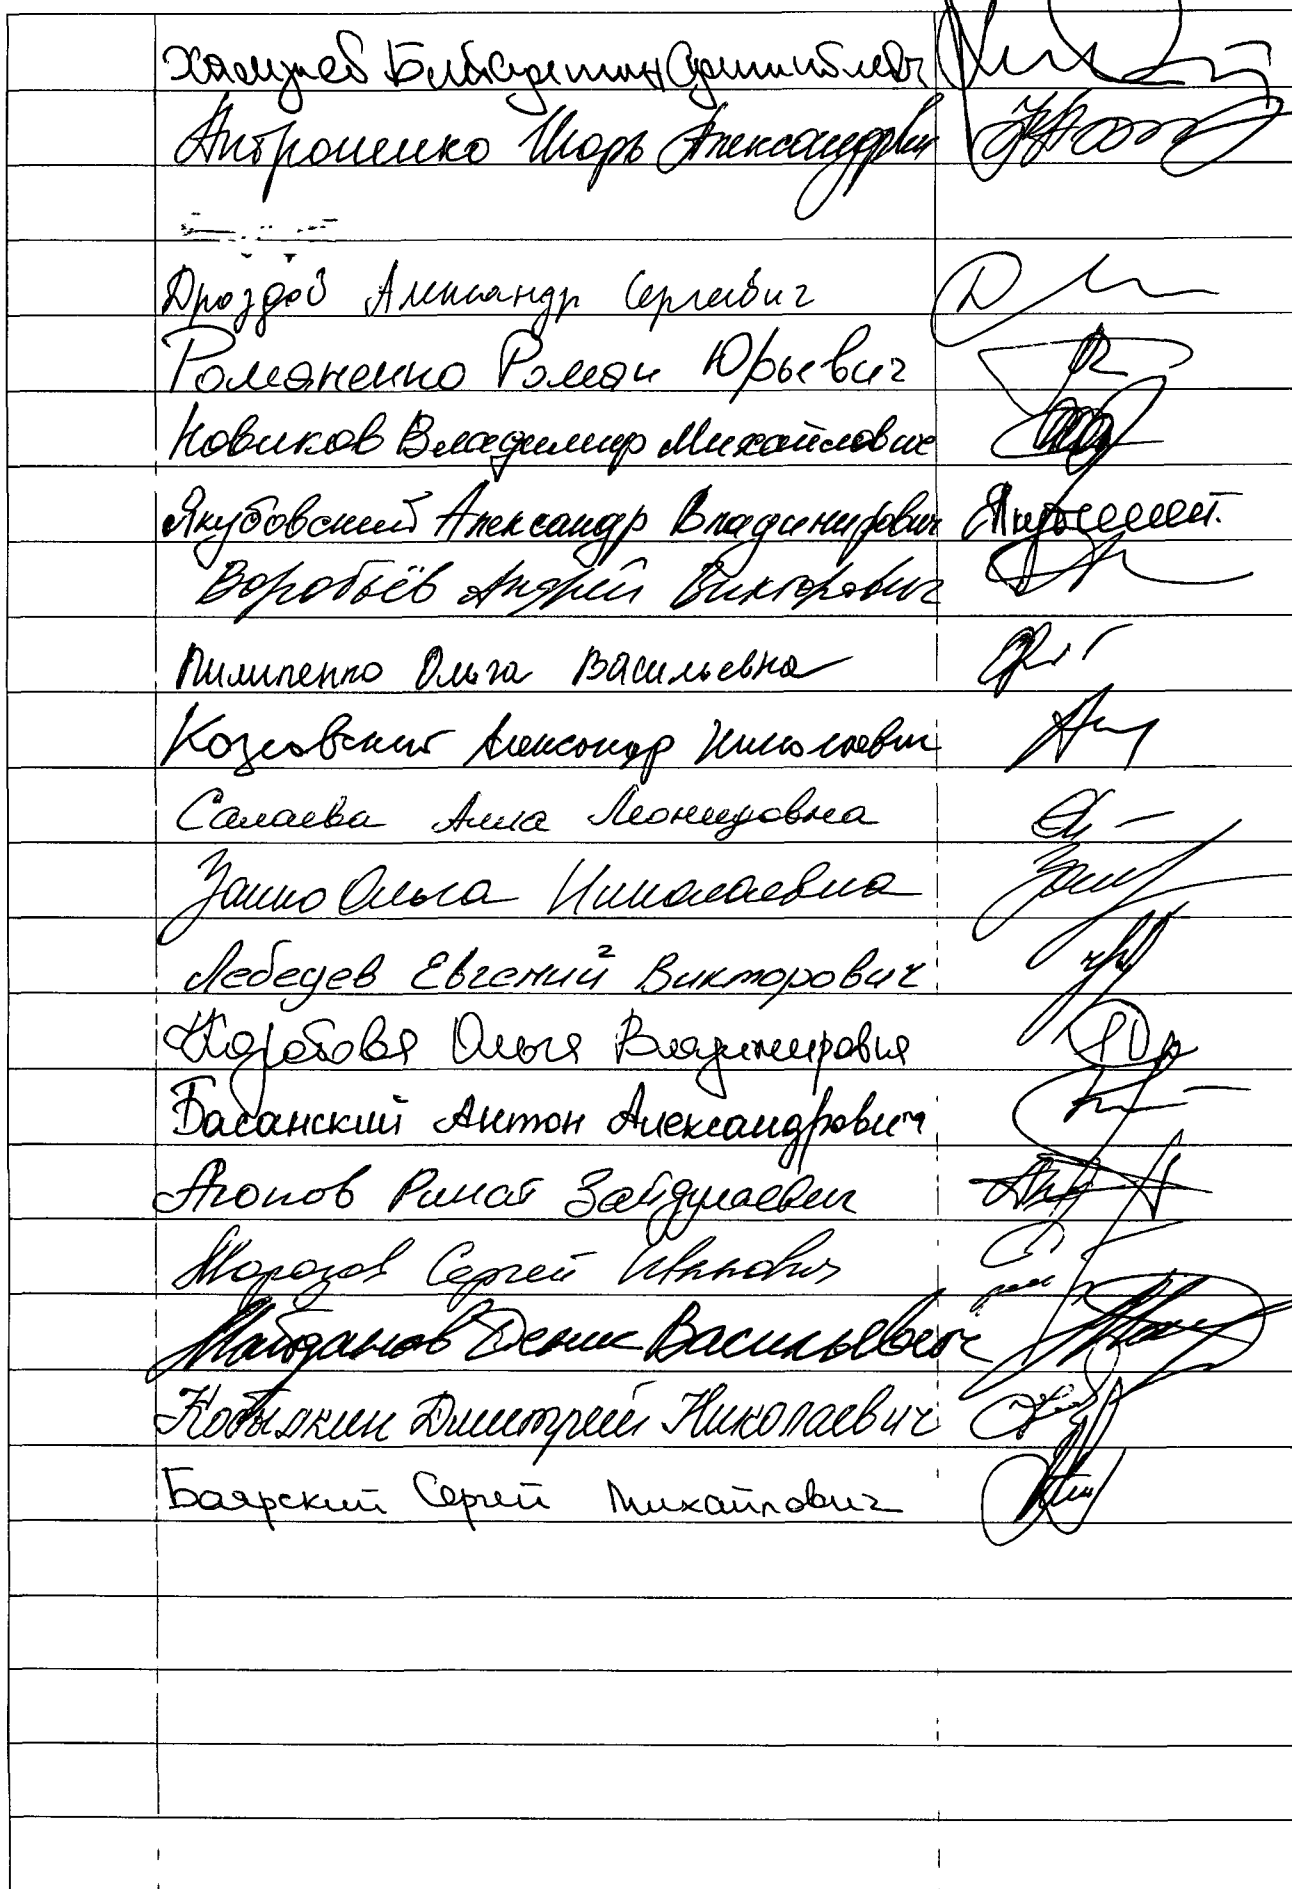 Хамзаев
Антрошенко Игорь Александрович
Дроздов Александр Сергеевич
Романенко Роман Юрьевич
Новиков Владимир Михайлович
Якубовский Александр Владимирович
Воробьёв Андрей Викторович
Пилипенко Ольга Васильевна
Козловский Александр Николаевич
Салаева Алла Леонидовна
Занко Ольга Николаевна
Лебедев Евгений Викторович
Коробова Ольга Владимировна
Басанский Антон Александрович
Аюпов Ринат Зайдулаевич
Морозов Сергей Иванович
Майданов Денис Васильевич
Кобылкин Дмитрий Николаевич
Боярский Сергей Михайлович